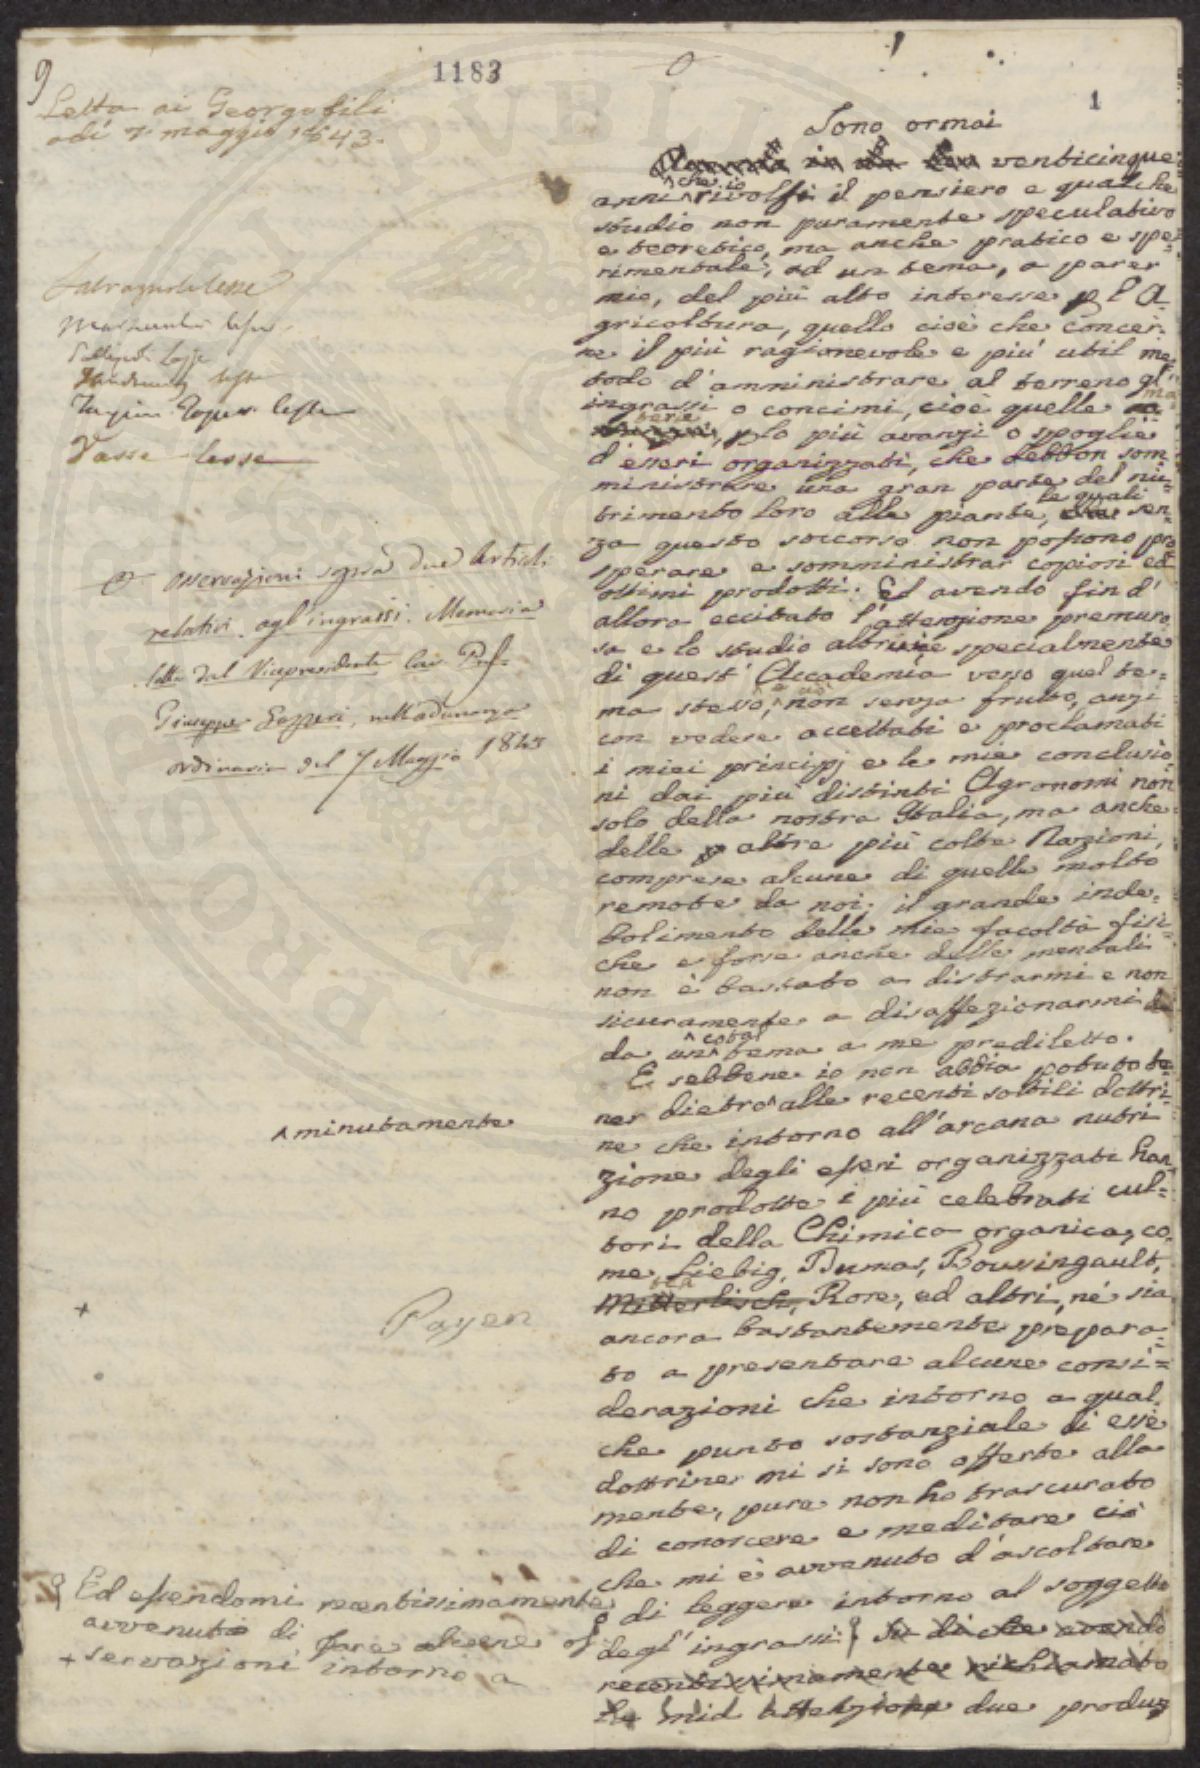 9
1183
1
Letta ai Georgofili
adì 7. maggio 1843.
lesse
Vasse lesse
Osservazioni sopra due Articoli
relativi agl'ingrassi. Memoria
letta dal Vicepresidente Cav. Prof.
Giuseppe Gazzeri, nell'adunanza
ordinaria del 7 Maggio 1843
^ minutamente
+
Payen
Ed essendomi recentissimamente
avvenuto di fare alcune os=
+ servazioni intorno a
Sono ormai
venticinque
anni che io rivolsi il pensiero e qualche
studio non puramente speculativo
e teoretico, ma anche pratico e spe=
rimentale, ad un tema, a parer
mio, del più alto interesse p l'A=
gricoltura, quello cioè che concer=
ne il più ragionevole e più util me=
todo d'amministrare al terreno gl'
ingrassi o concimi, cioè quelle ma
terie, p lo più avanzi o spoglie
d'esseri organizzati, che debbon som=
ministrare una gran parte del nu=
trimento loro alle piante, le quali sen=
za questo soccorso non possono pro
sperare e somministrar copiosi ed
ottimi prodotti. Ed avendo fin d'
allora eccitato l'attenzione premuro
sa e lo studio altrui e specialmente
di quest'Accademia verso quel te=
ma stesso, non senza frutto, anzi
con vedere accettati e proclamati
i miei principj e le mie conclusio=
ni dai più distinti Agronomi non
solo della nostra Italia, ma anche
delle altre più colte Nazioni,
comprese alcune di quelle molto
remote da noi; il grande inde=
bolimento delle mie facoltà fisi=
che e forse anche delle mentali
non è bastato a distrarmi e non
sicuramente a disaffezionarmi
da un cotal tema a me prediletto.
E sebbene io non abbia potuto te=
ner dietro ^ alle recenti sottili dottri=
ne che intorno all'arcana nutri=
zione degli esseri organizzati han=
no prodotte i più celebrati cul=
tori della Chimica organica, co=
me Liebig, Dumas, Boussingault,
Mitterlisch, Rore, ed altri, nè sia
ancora bastantemente prepara=
to a presentare alcune consi=
derazioni che intorno a qual=
che punto sostanziale di esse
dottrine mi si sono offerte alla
mente, pure non ho trascurato
di conoscere e meditare ciò
che mi è avvenuto d'ascoltare
o di leggere intorno al soggetto
degl'ingrassi. Su di che avendo
recentissimamente richiamato
la mia attenzione due produz